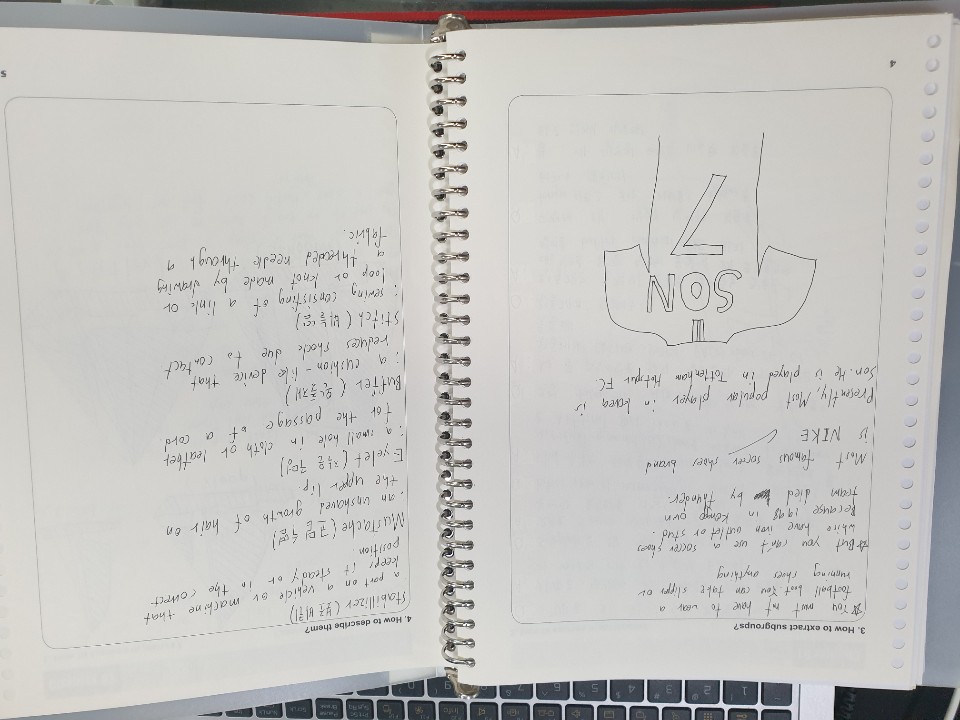 3. How to extract subgroups?
☆You must not have to wear a
football boot You can take slipper or
running shoes anything
☆But you can't use a soccer shoes
white have iron outlet or stud.
Because 1998 in Kongo own
team died by thunder.
Most famous soccer shoes brand
is NIKE
Presently, Most popular player in korea is
Son. He is played in Tottenham Hotspur FC
SON
7
4
4. How to describe them?
stabillizer (보조바퀴)
a part on a vehicle or machine that
keeps it steady or in the correct
position.
Mustache (코밑 수염)
: an unshaved growth of hair on
the upper lip.
Eyelet (작은 구멍)
: a small hole in cloth or leather
for the passage of a cord
Buffer (완충장치)
: a cushion-like device that
reduces shock due to contact
Stitch (바늘땀)
: sewing consisting of a link or
loop or knot made by drawing
a threaded needle through a
fabric.
5